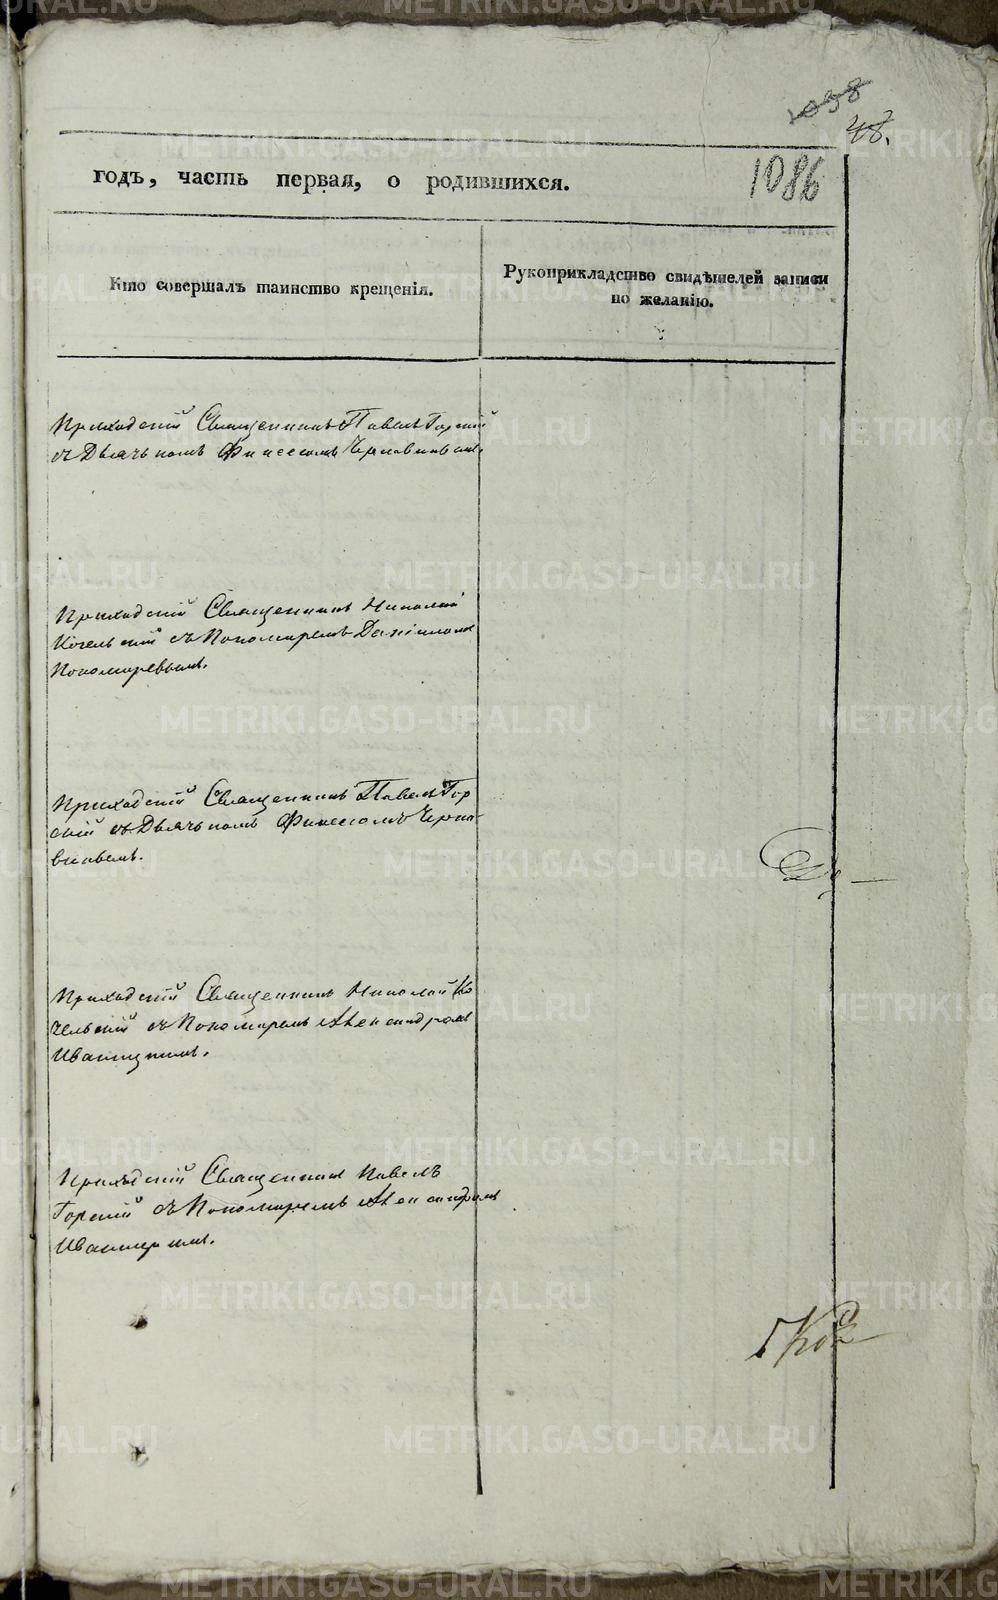 1038
48.
1086
годъ, часть первая, о родившихся.
Кто совершалъ таинство крещенія.
Рукоприкладство свидѣтелей записи
по желанію.
Приходскій Священникъ Павелъ Горскій
съ Дьячькомъ
Приходскій Священникъ Николай
Кочельскій съ Пономаремъ Данііломъ
Пономаревымъ.
Приходскій Священникъ Павелъ Гор
скій съ Дьячькомъ
Приходскій Священникъ Николай Ко
чельскій съ Пономаремъ Александромъ
Приходскій Священникъ Павелъ
Горскій съ Пономаремъ Александромъ
METRIKI.GASO-URAL.RU